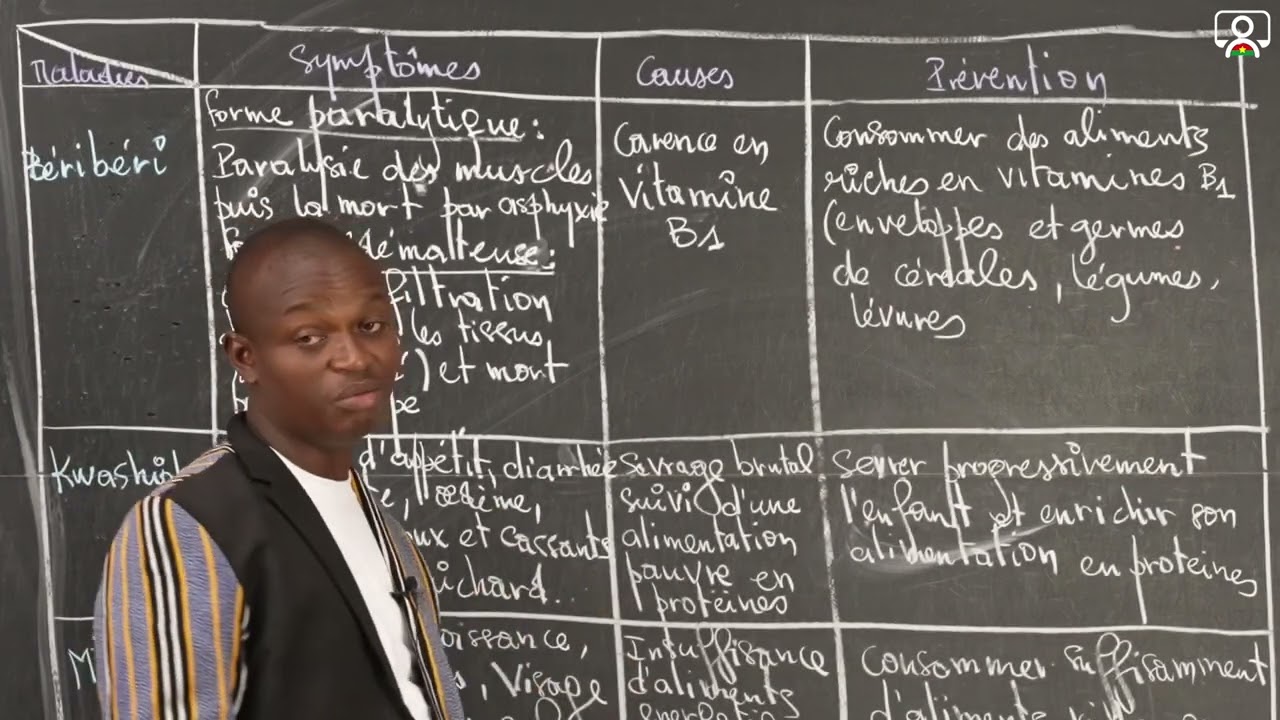 Maladies
Symptômes
Causes
Prévention
Béribéri
forme paralytique :
Paralysie des muscles
puis la mort par asphyxie
démateuse :
filtration
les tissus,
) et mort
Carence en
Vitamine
B1
Consommer des aliments
riches en vitamines B1
(enveloppes et germes
de céréales, légumes,
lévures
d'appétit, diarrhée
œdème,
et cassants
Sevrage brutal
suivi d'une
alimentation
pauvre en
protéines
Sevrer progressivement
l'enfant et enrichir son
alimentation en protéines
, Visage
Insuffisance
d'aliments
Consommer suffisamment
d'aliments